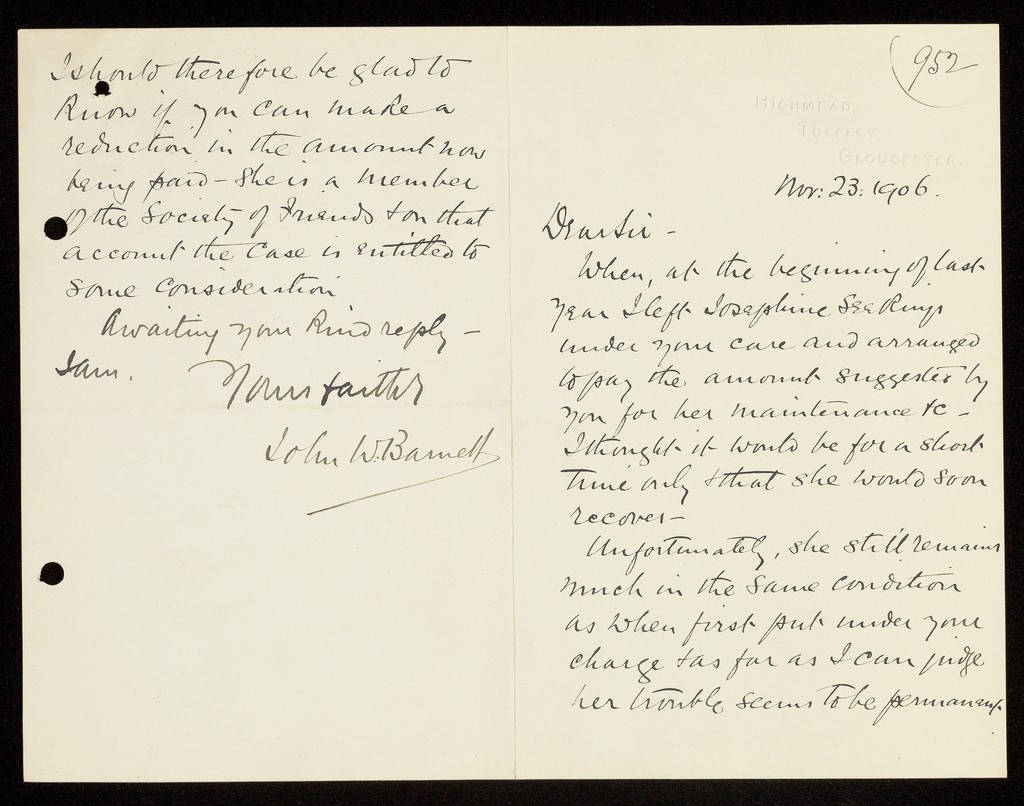 (952
HIGHMEAD,
TUFFLEY,
GLOUCESTER.
Nov: 23: 1906.
Dear Sir -
When, at the beginning of last
year I left Josephine Seekings
under your care and arranged
to pay the amount suggested by
you for her maintenance &c -
I thought it would be for a short
time only & that she would soon
recover -
Unfortunately, she still remains
much in the same condition
as when first put under your
charge & as far as I can judge
her trouble seems to be permanent
I should therefore be glad to
know if you can make a
reduction in the amount now
being paid - She is a member
of the Society of Friends & on that
account the case is entitled to
some consideration
Awaiting your kind reply -
I am.
Yours faithly
John W. Barnett